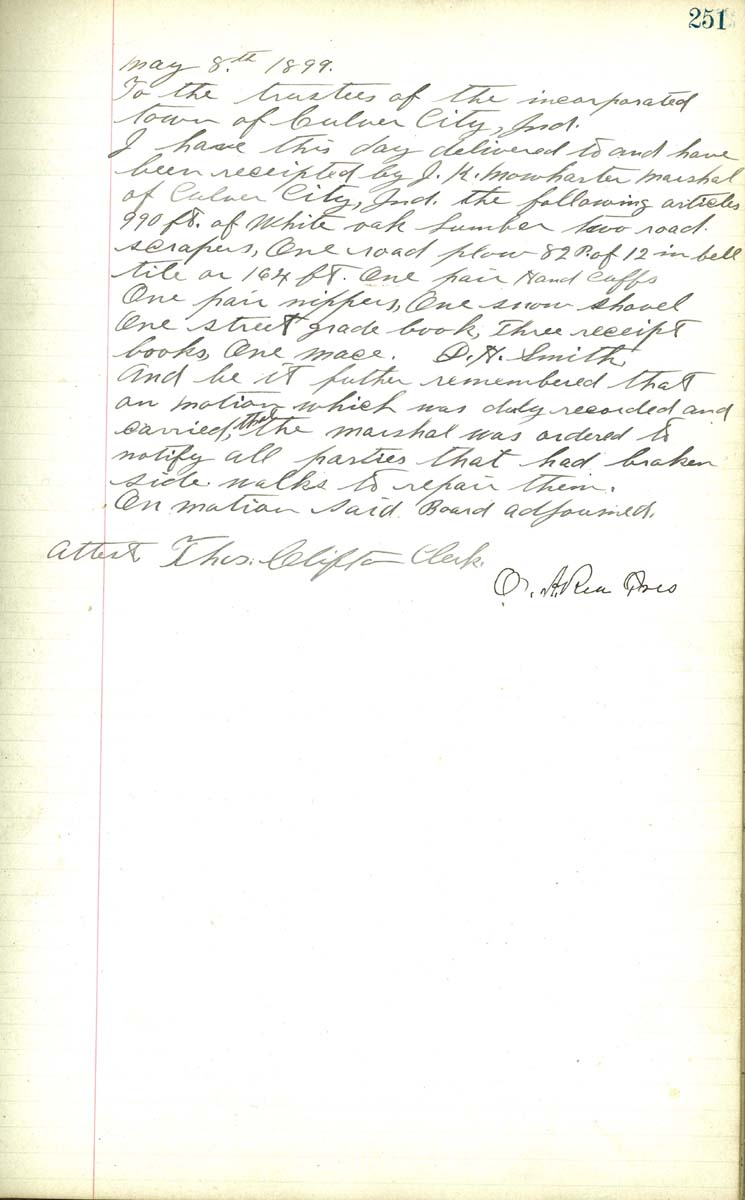 251
May 8.th 1899.
To the trustees of the incorporated
town of Culver City, Ind.
I have this day delivered to and have
been receipted by J. K. Mowharter Marshal
of Culver City, Ind. the following articles
990 ft. of White oak Lumber two road
scrapers, One road plow 82 P. of 12 in bell
tile or 164 ft. One pair Hand Cuffs
One pair nippers, One snow shovel
One street grade book, Three receipt
books, One mace. D. H. Smith
And be it futher remembered that
on motion which was duly recorded and
carried, that the marshal was ordered to
notify all parties that had broken
side walks to repair them.
On motion said Board adjourned.
Attest Thos. Clifton Clerk.
O. A. Rea Pres